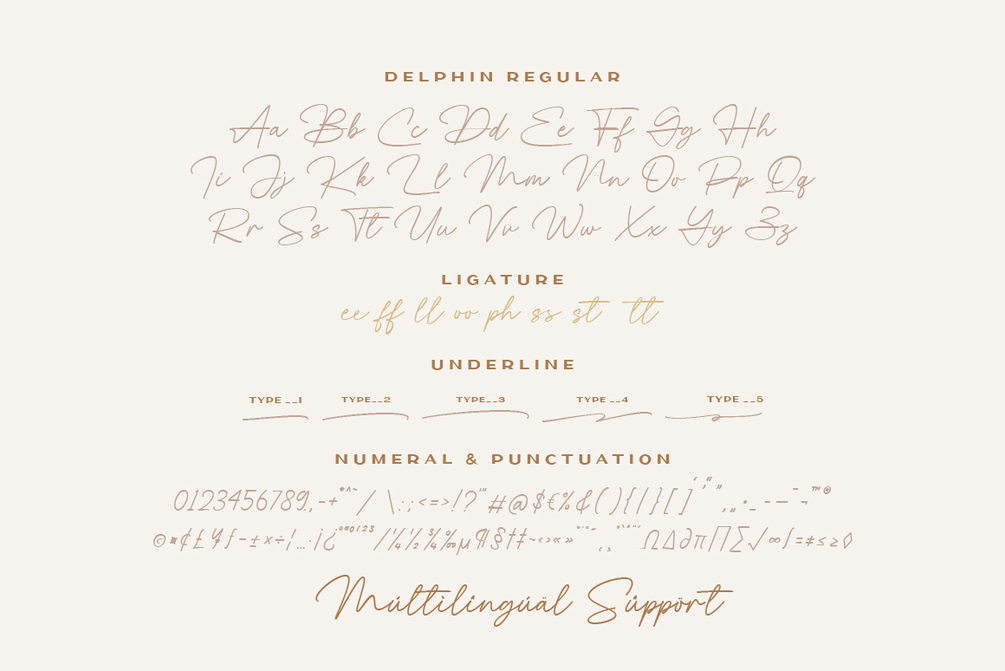 DELPHIN REGULAR
Aa Bb Cc Dd Ee Ff Gg Hh
Ii Jj Kk Ll Mm Nn Oo Pp Qq
Rr Ss Tt Uu Vv Ww Xx Yy Zz
LIGATURE
ee ff ll oo ph ss st tt
UNDERLINE
TYPE __1 TYPE__2 TYPE__3 TYPE __4 TYPE __5
NUMERAL & PUNCTUATION
0123456789.,-+*^~/ \ :;<=>!?'"#@$€%&(){|}[]‘’“”‚„•_-–—¯¬™®
©¤¢£¥ƒ-±×÷¦…·¡¿ªº⁰¹²³/¼½¾‰µ¶§†‡~‹›«»ΩΔ∂π∏∑√∞∫=≠≤≥◊
Múltilingúäl Súppört